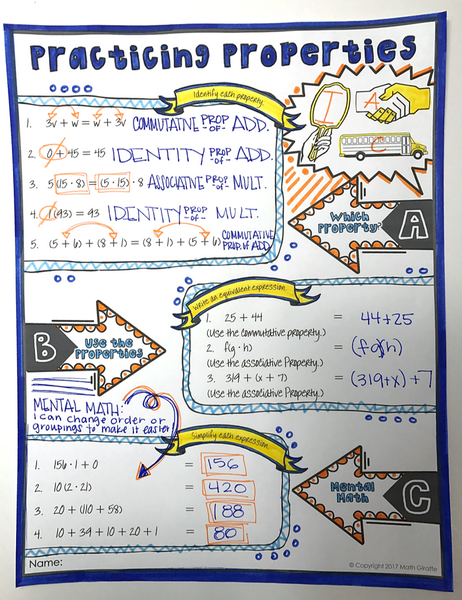 Practicing Properties
Identify each property.
1. 3v + w = w + 3v COMMUTATIVE PROP -OF- ADD.
2. 0 + 45 = 45 IDENTITY PROP -OF- ADD.
3. 5(15 · 8) = (5 · 15) · 8 ASSOCIATIVE PROP -OF- MULT.
4. 1(93) = 93 IDENTITY PROP -OF- MULT.
5. (5 + 6) + (8 + 1) = (8 + 1) + (5 + 6) COMMUTATIVE PROP. OF ADD.
I A C
Which Property?
A
Write an equivalent expression.
1. 25 + 44 = 44+25
(Use the commutative property.)
2. f(g · h) =
(Use the associative Property.)
3. 319 + (x + 7) = (319+x) + 7
(Use the associative Property.)
B
Use the Properties
MENTAL MATH:
I can change order or
groupings to make it easier!
Simplify each expression.
1. 156 · 1 + 0 = 156
2. 10(2 · 21) = 420
3. 20 + (110 + 58) = 188
4. 10 + 39 + 10 + 20 + 1 = 80
Mental Math
C
Name:
© Copyright 2017 Math Giraffe